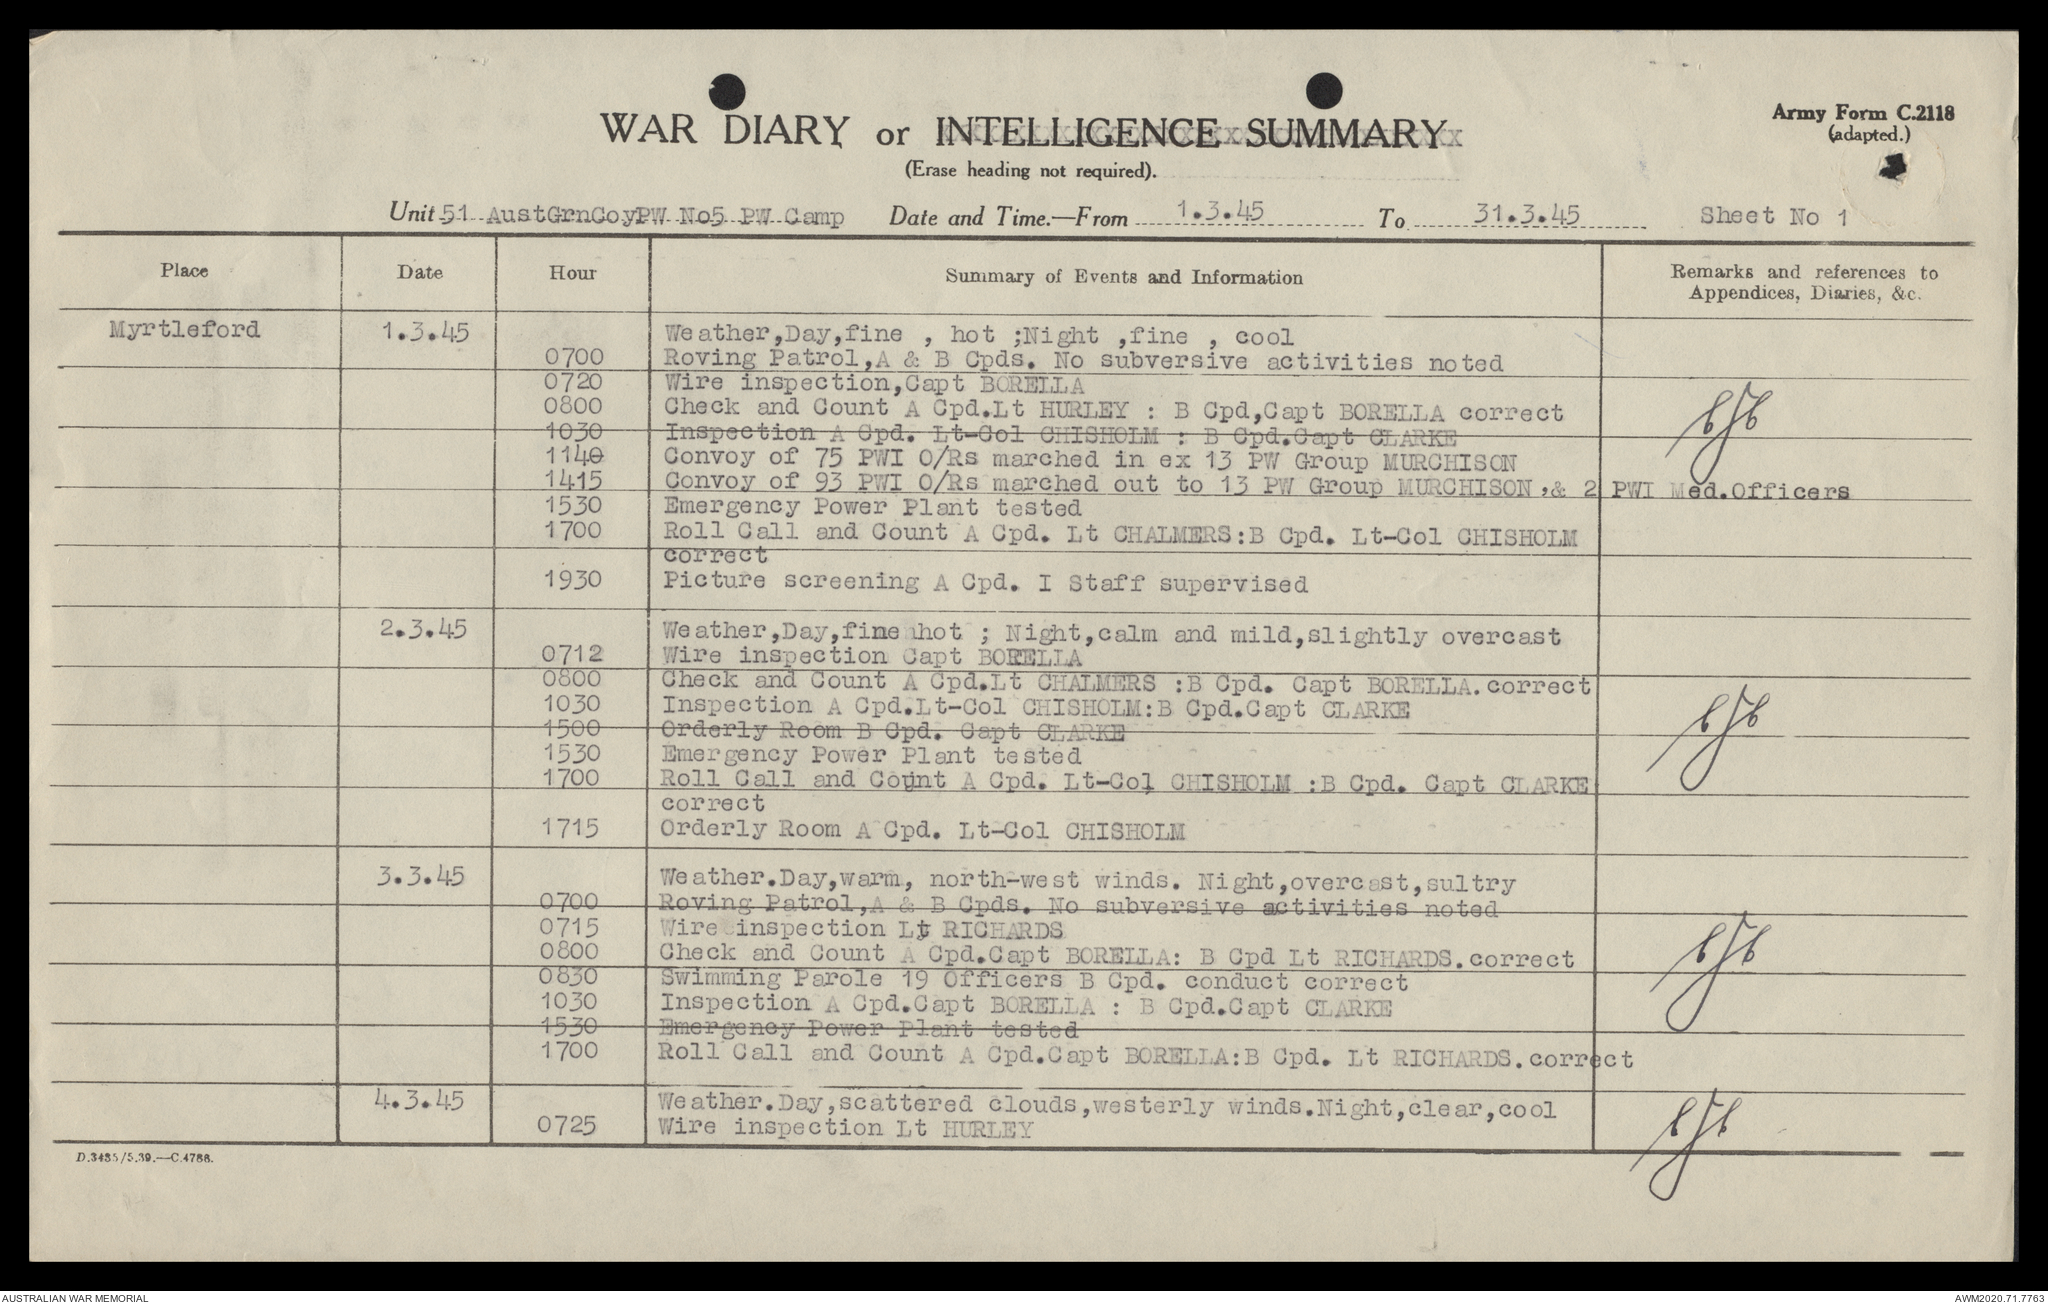 Army Form C.2118
(adapted.)
WAR DIARY or INTELLIGENCE SUMMARY
(Erase heading not required).
Unit 51 AustGrnCoyPW No5 PW Camp Date and Time.—From 1.3.45 To 31.3.45 Sheet No 1
Place Date Hour Summary of Events and Information Remarks and references to
Appendices, Diaries, &c.
Myrtleford 1.3.45 Weather,Day,fine , hot ;Night ,fine , cool
0700 Roving Patrol,A & B Cpds. No subversive activities noted
0720 Wire inspection,Capt BORELLA
0800 Check and Count A Cpd.Lt HURLEY : B Cpd,Capt BORELLA correct
1030 Inspection A Cpd. Lt-Col CHISHOLM : B Cpd.Capt CLARKE
1140 Convoy of 75 PWI O/Rs marched in ex 13 PW Group MURCHISON
1415 Convoy of 93 PWI O/Rs marched out to 13 PW Group MURCHISON ,& 2 PWI Med.Officers
1530 Emergency Power Plant tested
1700 Roll Call and Count A Cpd. Lt CHALMERS:B Cpd. Lt-Col CHISHOLM
correct
1930 Picture screening A Cpd. I Staff supervised
2.3.45 Weather,Day,fine hot ; Night,calm and mild,slightly overcast
0712 Wire inspection Capt BORELLA
0800 Check and Count A Cpd.Lt CHALMERS :B Cpd. Capt BORELLA.correct
1030 Inspection A Cpd.Lt-Col CHISHOLM:B Cpd.Capt CLARKE
1500 Orderly Room B Cpd. Capt CLARKE
1530 Emergency Power Plant tested
1700 Roll Call and Count A Cpd. Lt-Col CHISHOLM :B Cpd. Capt CLARKE
correct
1715 Orderly Room A Cpd. Lt-Col CHISHOLM
3.3.45 Weather.Day,warm, north-west winds. Night,overcast,sultry
0700 Roving Patrol,A & B Cpds. No subversive activities noted
0715 Wire inspection Lt RICHARDS
0800 Check and Count A Cpd.Capt BORELLA: B Cpd Lt RICHARDS.correct
0830 Swimming Parole 19 Officers B Cpd. conduct correct
1030 Inspection A Cpd.Capt BORELLA : B Cpd.Capt CLARKE
1530 Emergency Power Plant tested
1700 Roll Call and Count A Cpd.Capt BORELLA:B Cpd. Lt RICHARDS.correct
4.3.45 Weather.Day,scattered clouds,westerly winds.Night,clear,cool
0725 Wire inspection Lt HURLEY
D.3485/5.39.—C.4788.
AUSTRALIAN WAR MEMORIAL AWM2020.71.7763